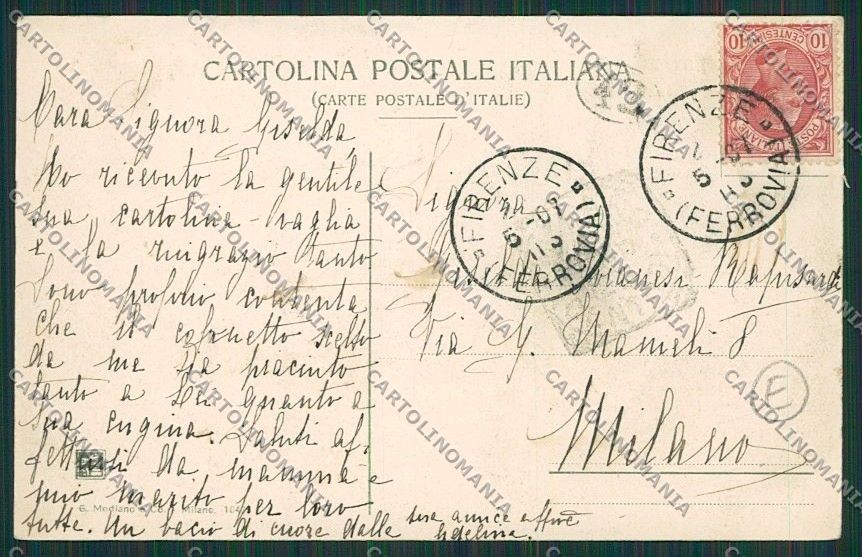 CARTOLINA POSTALE ITALIANA
(CARTE POSTALE D'ITALIE)
10 CENTESIMI 10
POSTE ITALIANE
FIRENZE
(FERROVIA)
FIRENZE
(FERROVIA)
Cara Signora Giselda,
Ho ricevuto la gentile
sua cartolina-vaglia
e la ringrazio tanto
Sono proprio contenta
che il colletto scelto
da me sia piaciuto
tanto a Lei quanto a
sua cugina. Saluti af-
fettuosi da mamma e
mio marito per loro
tutte. Un bacio di cuore dalla sua amica affma
Fidelma.
Signora
Giselda Rapisardi
Via G. Mameli 8
Milano
E
G. Modiano & Co. Milano.
CARTOLINOMANIA